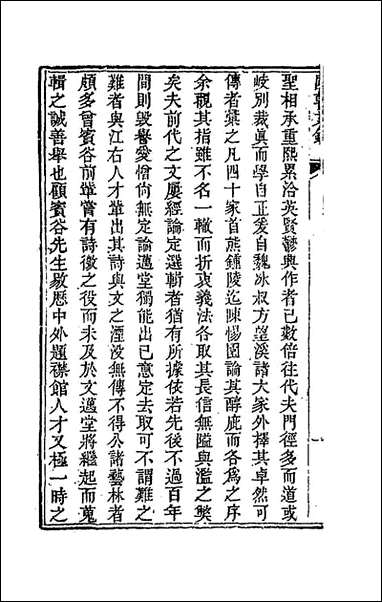 聖相承重熙累洽英賢鬱興作者已數倍往代夫門徑多而道或
岐別裁眞而學自正爰自魏冰叔方望溪諸大家外擇其卓然可
傳者彚之凡四十家首熊鍾陵迄陳惕園論其醇疵而各爲之序
余觀其指雖不名一轍而折衷義法各取其長信無隘與濫之獘
矣夫前代之文屢經論定選輯者猶有所據依若先後不過百年
間則毁譽愛憎尙無定論邁堂獨能出已意定去取可不謂難之
難者與江右人才輩出其詩與文之湮没無傳不得公諸藝林者
頗多曾賓谷前輩嘗有詩徵之役而未及於文邁堂將繼起而蒐
輯之誠善舉也顧賓谷先生敭歴中外題襟館人才又極一時之